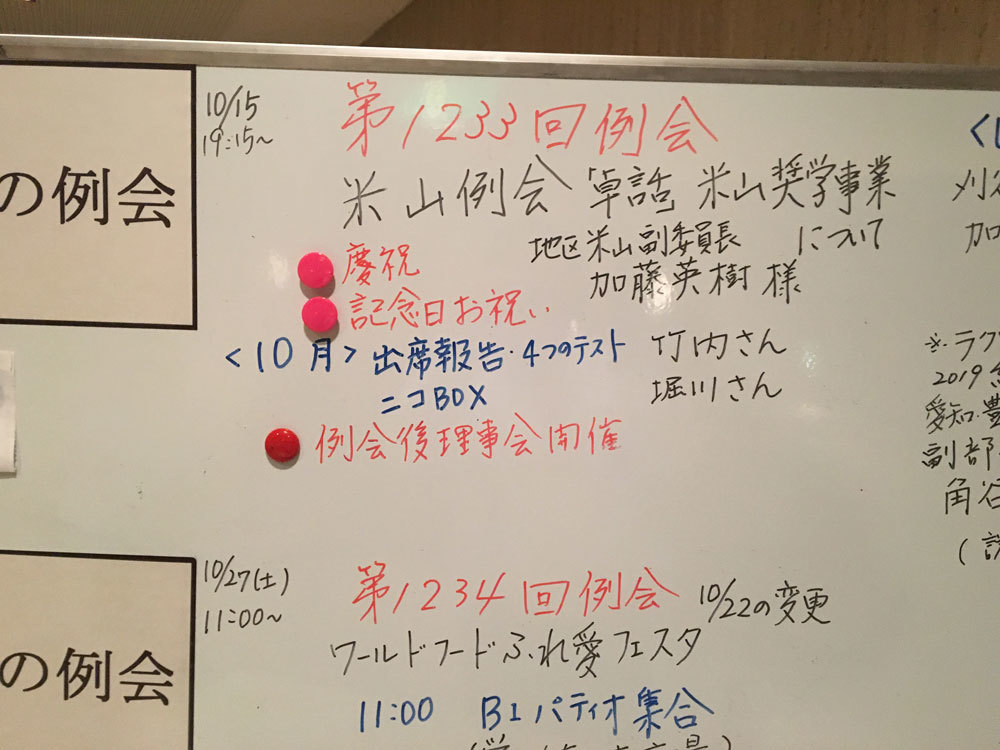 の例会
10/15
19:15~
第1233回例会
米山例会 卓話 米山奨学事業
について
地区米山副委員長
加藤英樹様
慶祝
記念日お祝い
<10月> 出席報告・4つのテスト 竹内さん
ニコBOX 堀川さん
例会後理事会開催
刈谷
加
※ラク
2019
愛知・豊
副部
角谷
の例会
10/27(土)
11:00~
第1234回例会 10/22の変更
ワールドフードふれ愛フェスタ
11:00 B1パティオ集合